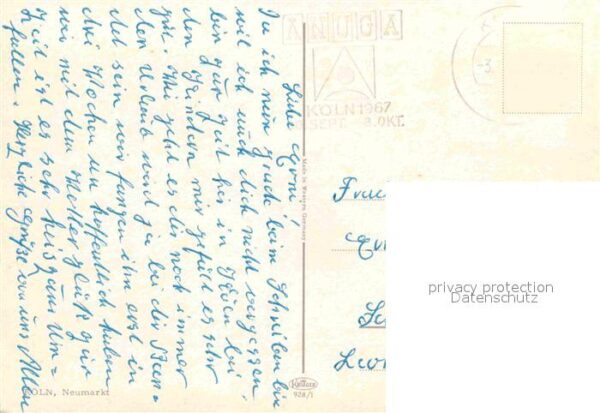 Liebe Erna!
Da ich nun grade beim Schreiben bin
will ich auch dich nicht vergessen
bin zur zeit hier in Köln bei
den Kindern mir gefält es sehr
gut. Wie geht es dir noch immer
der Urlaub wird ja bei dir been-
det sein wir fangen ihn erst in
drei Wochen an hoffentlich haben
wir mit dem Wetter glück zur
Zeit ist es sehr heis zum Um-
fallen. Herzliche Grüße von uns Allen
KÖLN, Neumarkt
ANUGA
KÖLN 1967
SEPT. - 8.OKT.
Made in Western Germany
Krüger
928/1
Frau
privacy protection
Datenschutz